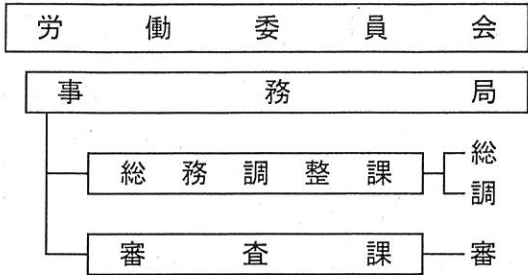 労働委員会
事務局
総務調整課
総
調
審査課
審